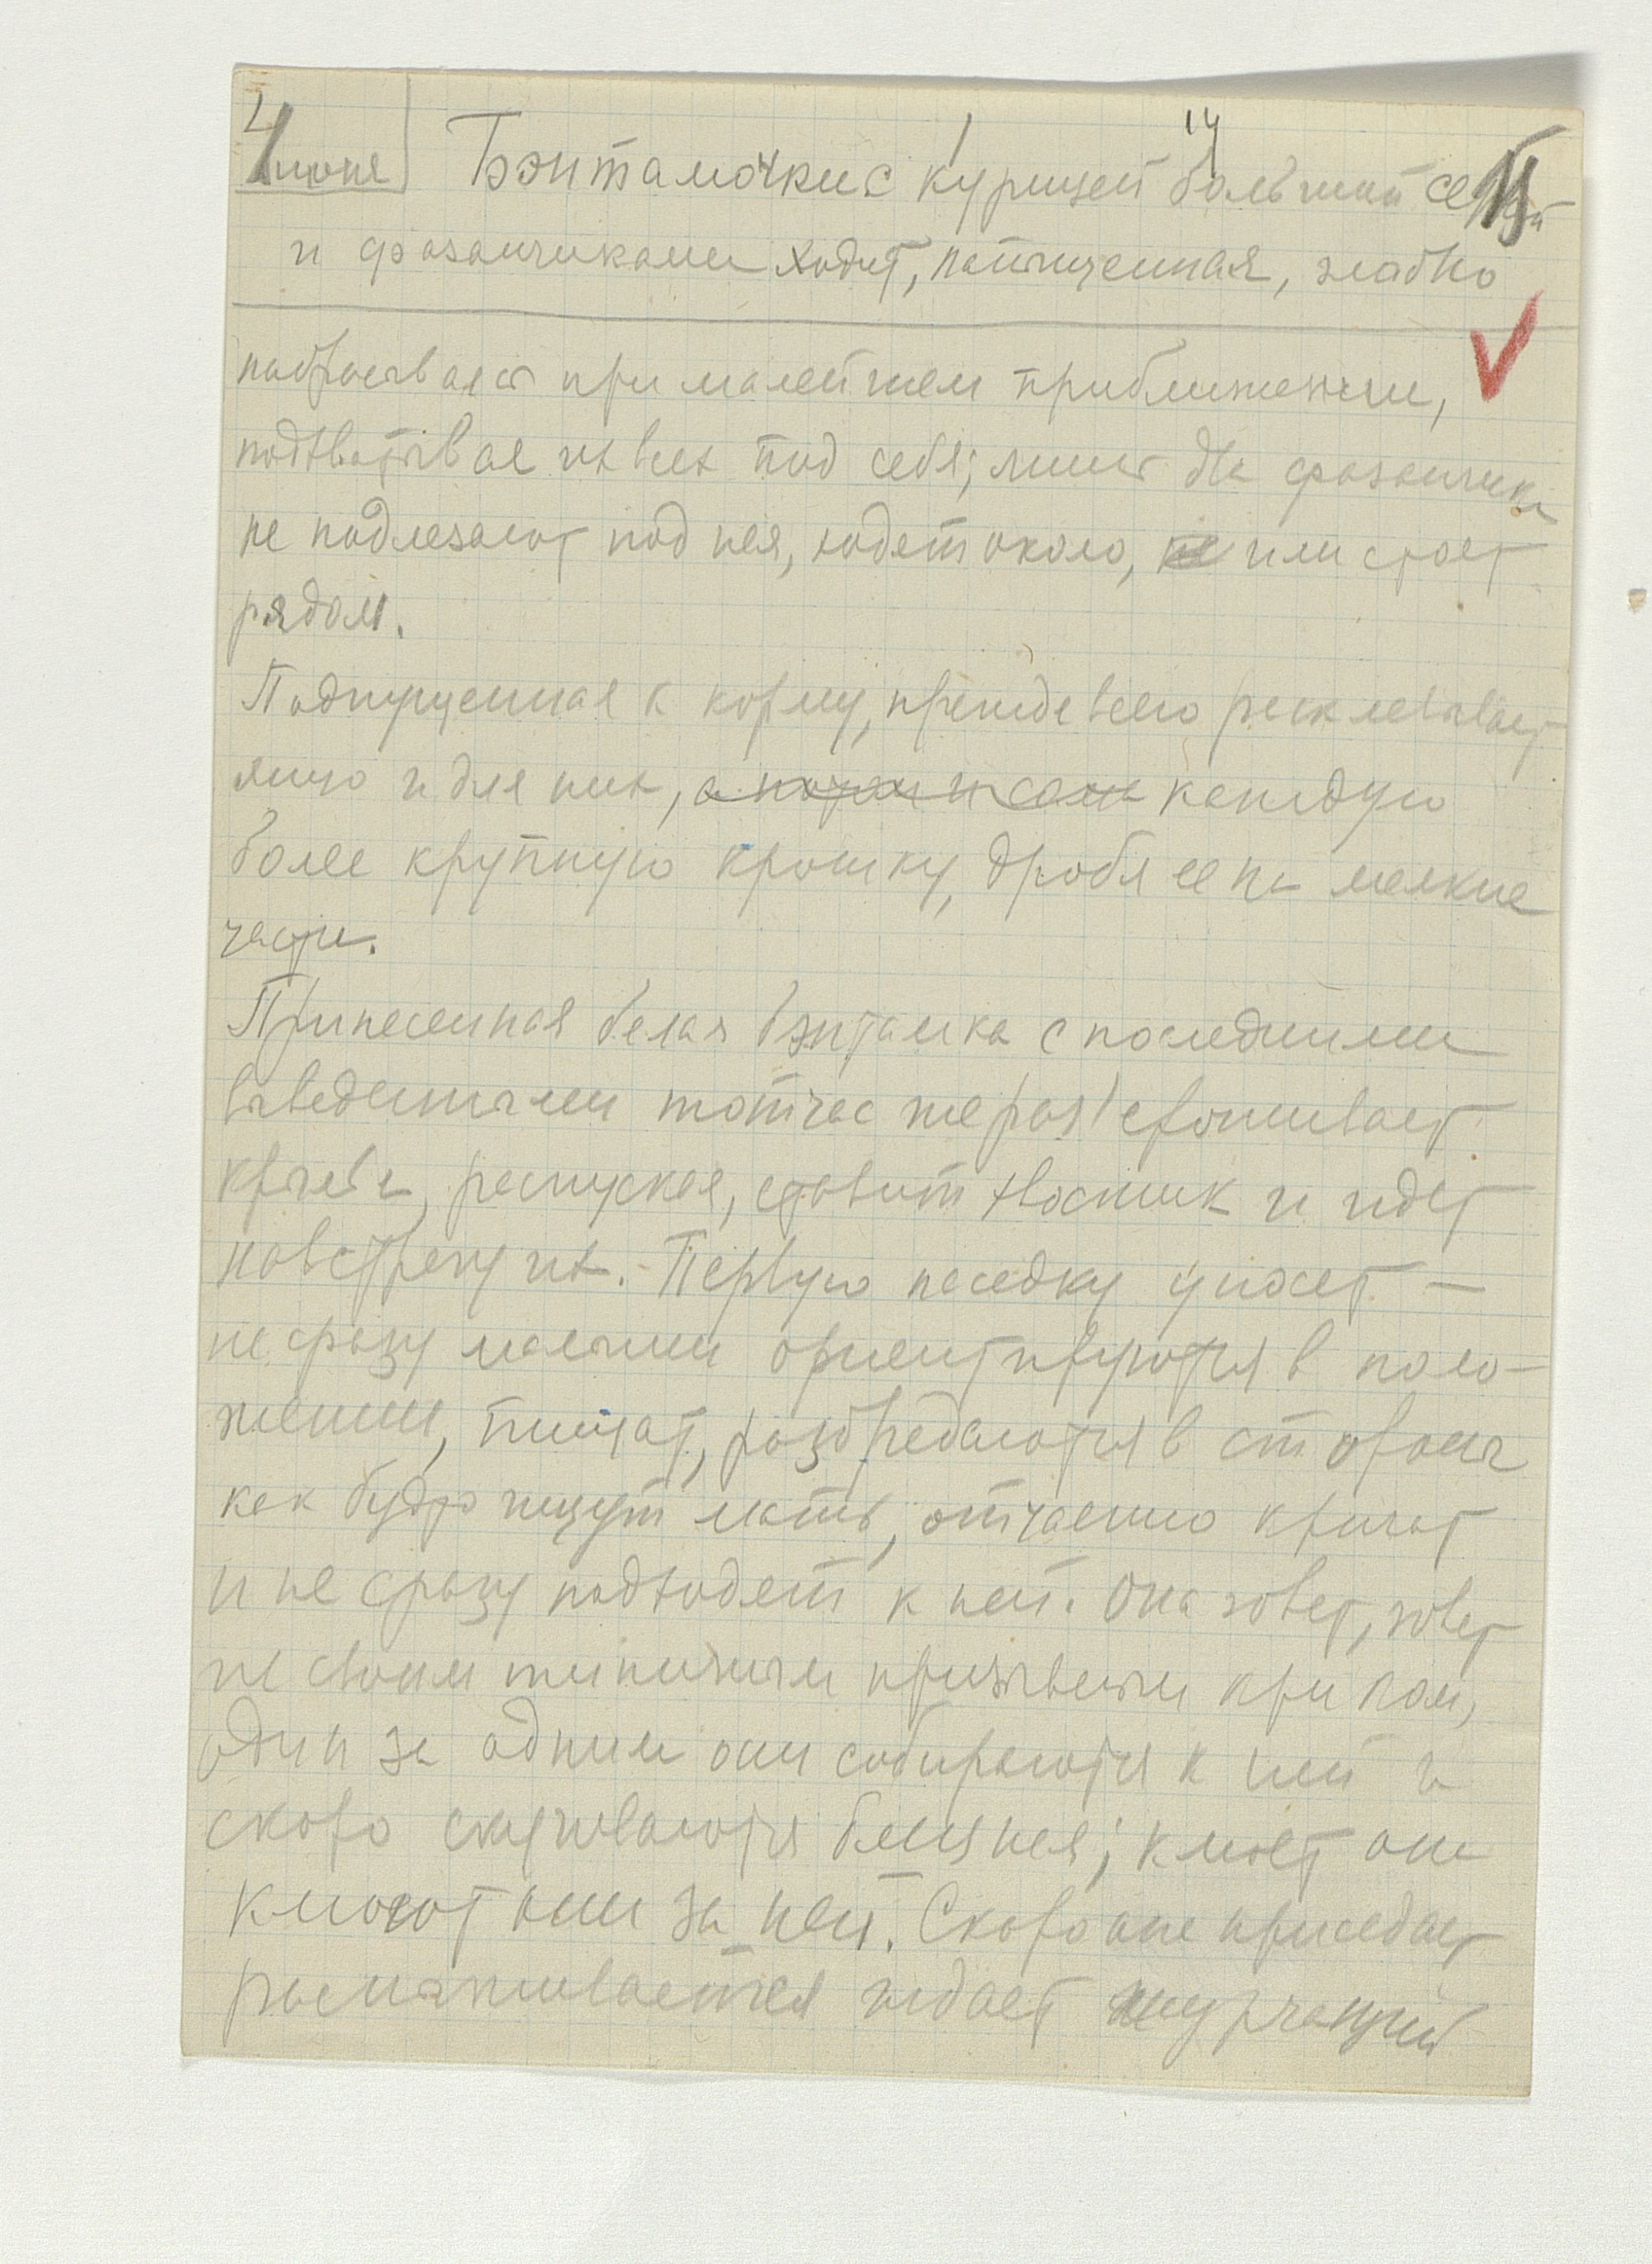 4
1 июня Бэнтамочки с курицей большой се
14
и фазанчиками ходит, напыщенная, злобно
набрасываясь при малейшем приближении,
подхватывая их всех под себя; лишь два фазанчика
не подлезают под нея, ходят около, или стоят
рядом.
Подпущенная к корму, прежде всего расклевывает
яйцо и для них, а потом и сама каждую
более крупную крошку, дробя ее на мелкие
части.
Принесенная белая бэнтамка с последними
выведенными тотчас же растопыривает
крылья, распуская, ставит хвостик и идет
навстречу их. Первую наседку уносят —
не сразу малыши ориентируются в поло-
жении, пищат, разбредаются в стороны
как будто ищут мать, отчаянно кричат
и не сразу подходят к ней. Она зовет, зовет
не своим типичным призывным криком,
один за одним они собираются к ней и
скоро скучиваются близ нея; клюет она
клюют они за ней. Скоро она приседает
и издает журчащий